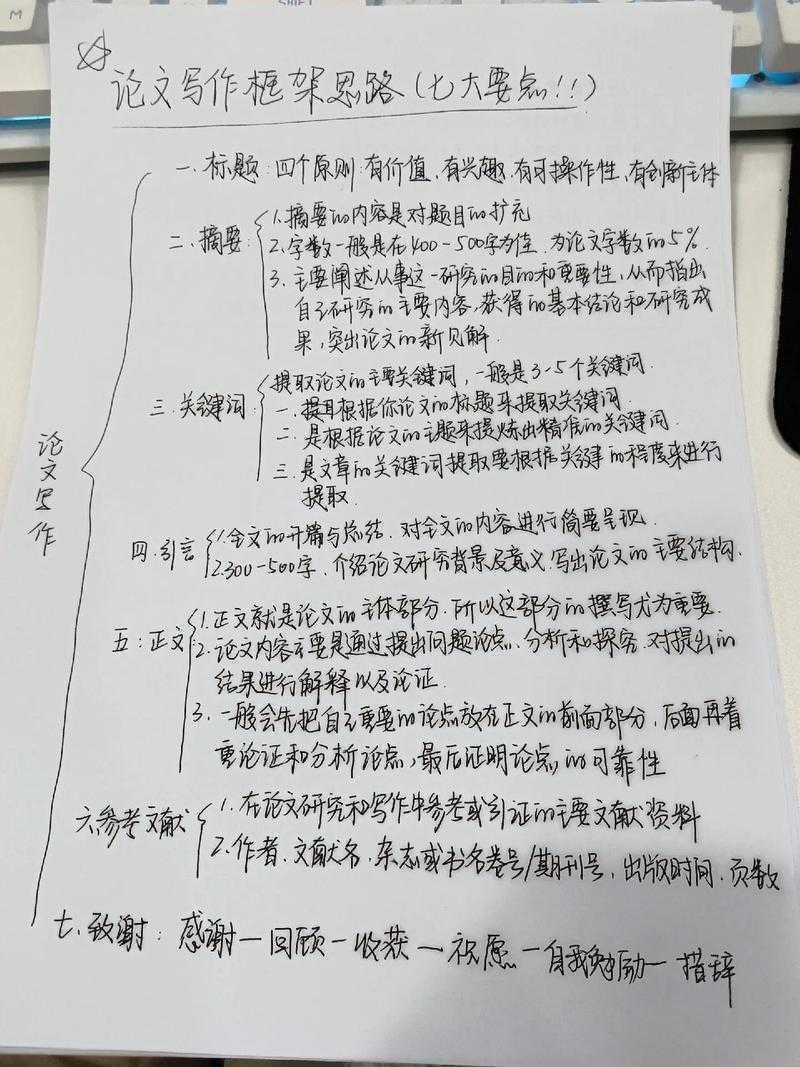 M
SHIFT
论文写作框架思路(七大要点!!)
一、标题:四个原则:有价值、有兴趣、有可操作性、有创新主体
二、摘要:
1.摘要的内容是对题目的扩充
2.字数一般是在400-500字为佳,为论文字数的5%.
3.主要阐述从事这一研究的目的和重要性,从而指出
自己研究的主要内容,获得的基本结论和研究成
果,突出论文的新见解.
三、关键词
提取论文的主要关键词,一般是3-5个关键词.
一、提取根据你论文的标题来提取关键词.
二、是根据论文的主题来提炼出精准的关键词.
三、是文章的关键词提取要根据关键的程度来进行
提取.
论文写作
四、引言
1.全文的开篇与总结.对全文的内容进行简要呈现.
2.300-500字.介绍论文研究背景及意义.写出论文的主要结构.
五:正文:
1.正文就是论文的主体部分.所以这部分的撰写尤为重要.
2.论文内容主要是通过提出问题论点、分析和探究.对提出的
结果进行解释以及论证.
3.一般会先把自己重要的论点放在正文的前面部分,后面再着
重论证和分析论点,最后证明论点的可靠性
六参考文献
1.在论文研究和写作中参考或引证的主要文献资料
2.作者.文献名.杂志或书名卷号/期刊号,出版时间.页数
七、致谢:感谢—回顾—收获—祝愿—自我勉励—措辞